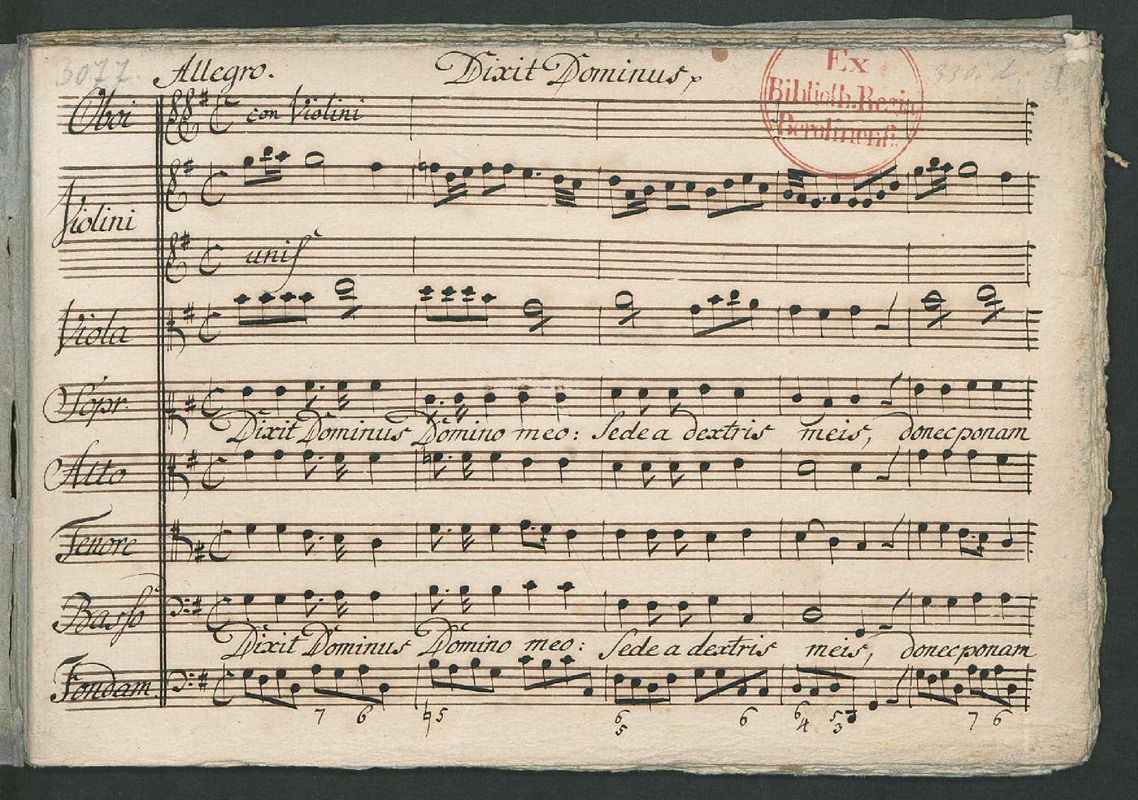 3077. Allegro. Dixit Dominus
Ex
Biblioth. Regia
Berolinensi.
Oboi con Violini
Violini
unis
Viola
Sopr.
Dixit Dominus Domino meo: Sede a dextris meis, donec ponam
Alto
Tenore
Basso
Dixit Dominus Domino meo: Sede a dextris meis, donec ponam
Fondam.
7 6 ♮5 6 5 6 6 4 5 3 7 6